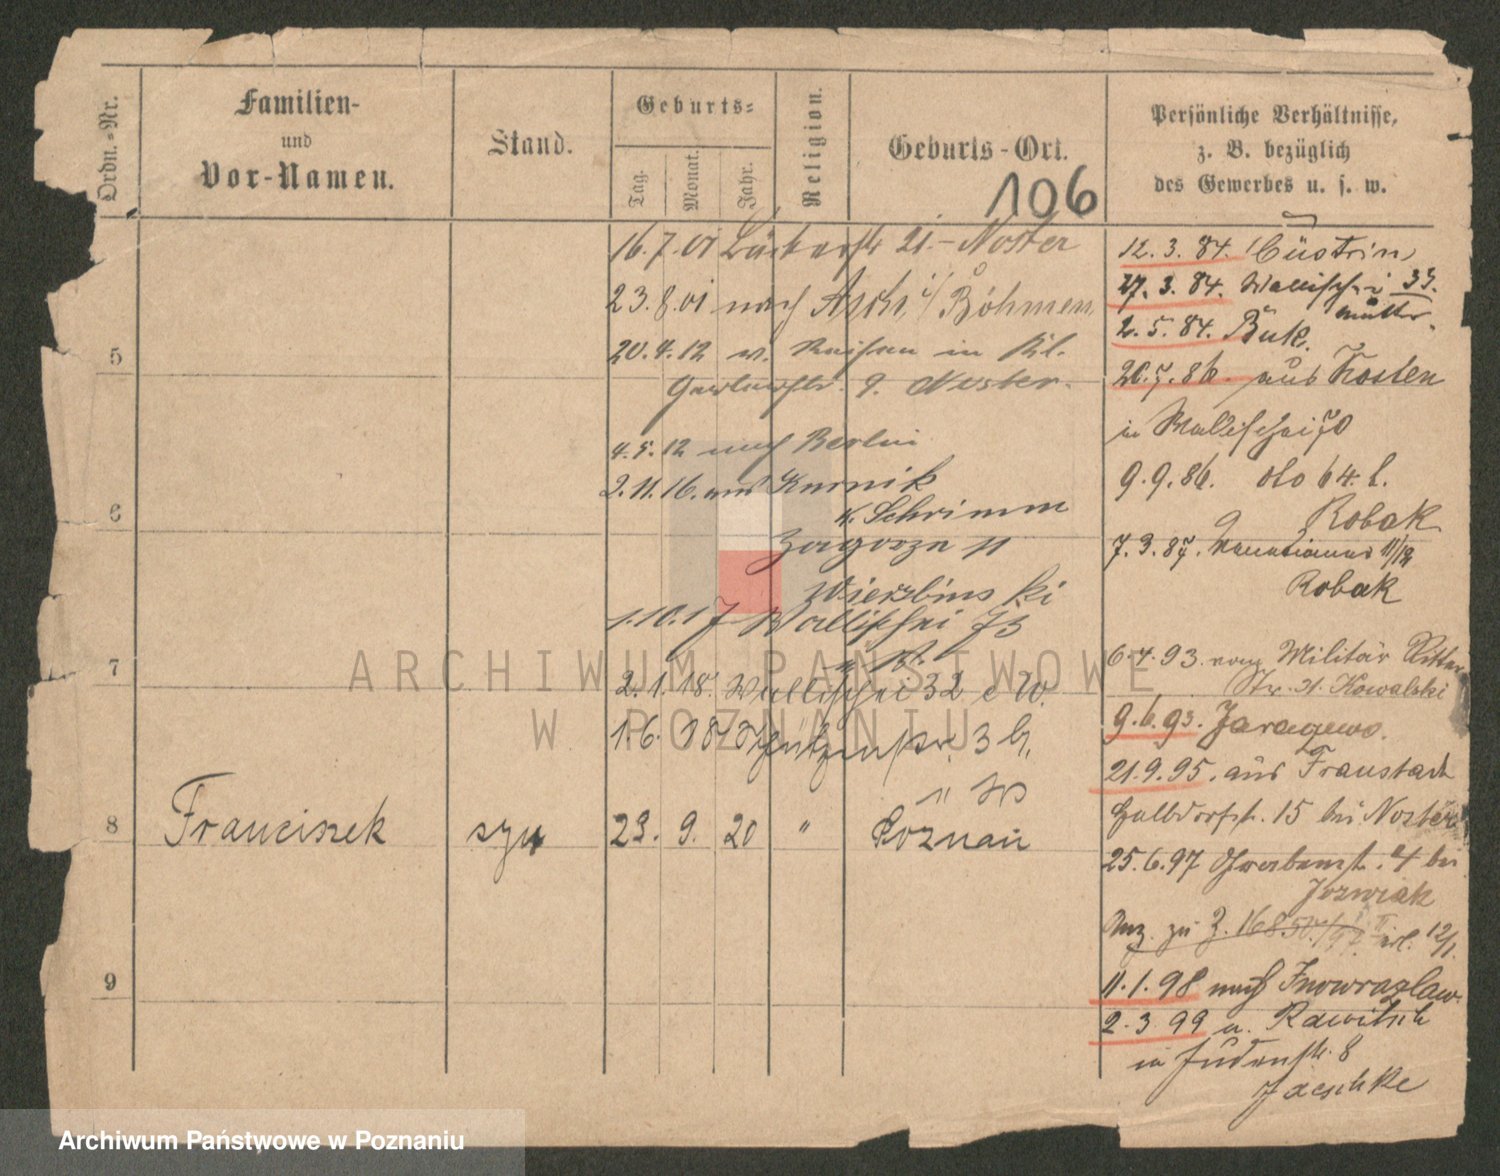 Ordn.-Nr.
Familien-
und
Vor-Namen.
Stand.
Geburts-
Tag.
Monat.
Jahr.
Religion.
Geburts-Ort.
Persönliche Verhältnisse,
z. B. bezüglich
des Gewerbes u. s. w.
106
16.7.01 21. Noster
23.8.01 nach Asch i/ Böhmen
20.4.12 v. in Kl.
9. Noster.
4.5.12 nach Berlin
2.11.16. aus Kurnik
K. Schrimm
Zagorze 11
Wierzbinski
1.10.17 Wallischei 73
2.1.18. Wallischei 32
1.6.18 3
5
6
7
8 Franciszek syn 23. 9. 20 " Poznań
9
12.3.84. Cüstrin
27.3.84. Wallischei
Mutter.
2.5.84. Buk.
20.5.86. aus Kosten
in Wallischei 70
9.9.86. dto 64.
Robak
7.3.87. 11/12
Robak
6.4.93. vom Militär Ritter
Str. 31. Kowalski
9.6.93. Jaragewo.
21.9.95. aus Fraustadt
Halbdorfstr. 15 bei Noster
25.6.97 4 bei
Jozwiak
zu 16850/97
11.1.98 nach Inowrazlaw.
2.3 99 a. Rawitsch
in Judenstr. 8
Jaeschke
ARCHIWUM PAŃSTWOWE
W POZNANIU
Archiwum Państwowe w Poznaniu